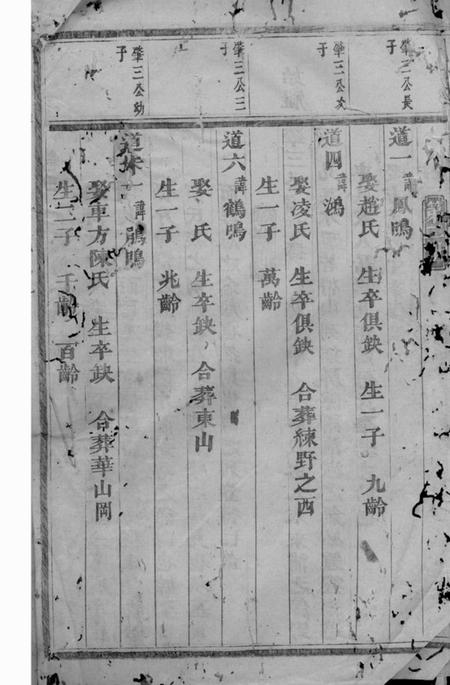 肇三公長子
道一 諱鳳鳴
娶趙氏 生卒俱缺 生一子 九齡
肇三公次子
道四 諱鴻
娶凌氏 生卒俱缺 合葬練野之西
生一子 萬齡
肇三公三子
道六 諱鶴鳴
娶 氏 生卒缺 合葬東山
生一子 兆齡
肇三公幼子
道 一 諱鵬鳴
娶車方陳氏 生卒缺 合葬華山岡
生二子 千齡 百齡